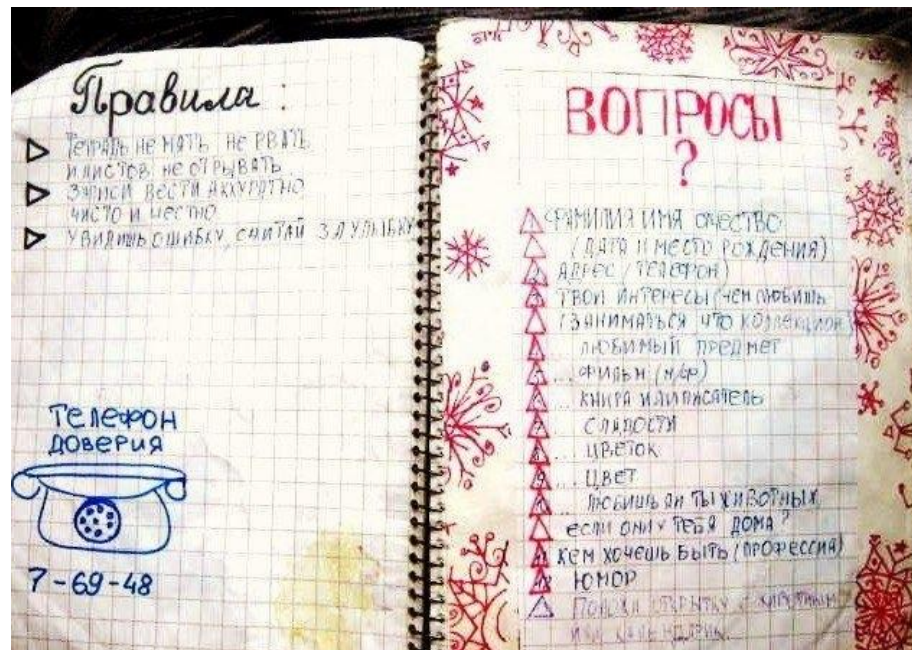 Правила:
ТЕТРАДЬ НЕ МЯТЬ, НЕ РВАТЬ
И ЛИСТОВ НЕ ОТРЫВАТЬ
ЗАПИСИ ВЕСТИ АККУРАТНО
ЧИСТО И ЧЕСТНО
УВИДИШЬ ОШИБКУ, СЧИТАЙ ЗА УЛЫБКУ
ТЕЛЕФОН
ДОВЕРИЯ
7-69-48
ВОПРОСЫ
?
1 ФАМИЛИЯ ИМЯ ОЧЕСТВО
(ДАТА И МЕСТО РОЖДЕНИЯ)
2 АДРЕС (ТЕЛЕФОН)
3 ТВОИ ИНТЕРЕСЫ (ЧЕМ ЛЮБИШЬ
ЗАНИМАТЬСЯ ЧТО КОЛЛЕКЦИОН)
ЛЮБИМЫЙ ПРЕДМЕТ
... ФИЛЬМ (м/ф)
... КНИГА ИЛИ ПИСАТЕЛЬ
7 СЛАДОСТИ
8 ... ЦВЕТОК
9 ... ЦВЕТ
ЛЮБИШЬ ЛИ ТЫ ЖИВОТНЫХ,
ЕСЛИ ОНИ У ТЕБЯ ДОМА?
11 КЕМ ХОЧЕШЬ БЫТЬ (ПРОФЕССИЯ)
12 ЮМОР
ОТКРЫТКУ С ЖИВОТНЫМ
ИЛИ КАЛЕНДАРИК.